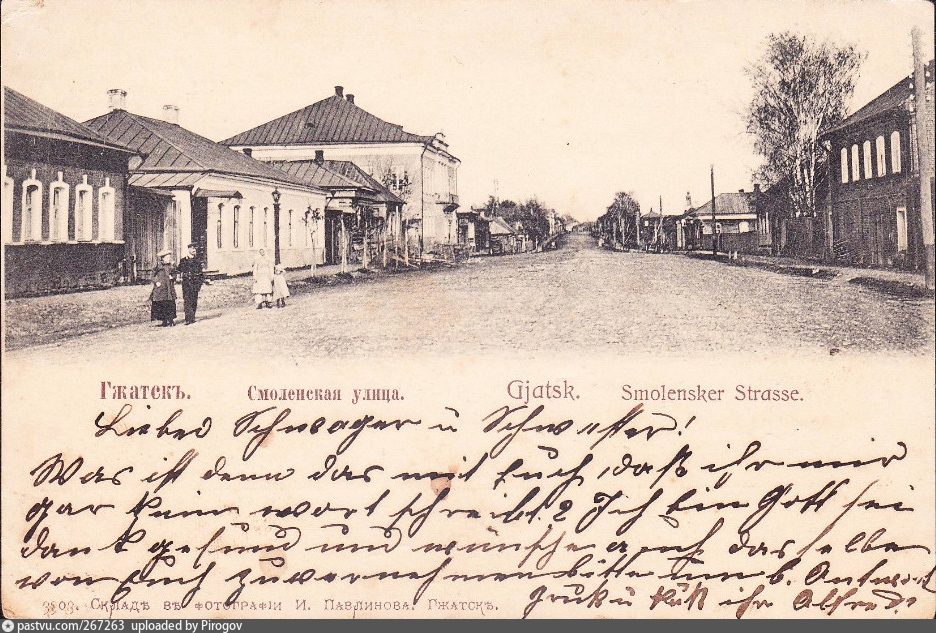 Гжатскъ. Смоленская улица. Gjatsk. Smolensker Strasse.
Liebes Schwager u Schwester!
Was ist denn das mit Euch, daß ihr mir
gar kein wort schreibt? Ich bin Gott sei
dank gesund und wünsche auch dasselbe
von Euch zu vernehmen bitte um b. Antwort
Gruß u Kuß ihr Alfred.
Складъ въ фотографiи И. Павлинова. Гжатскъ.
pastvu.com/267263 uploaded by Pirogov